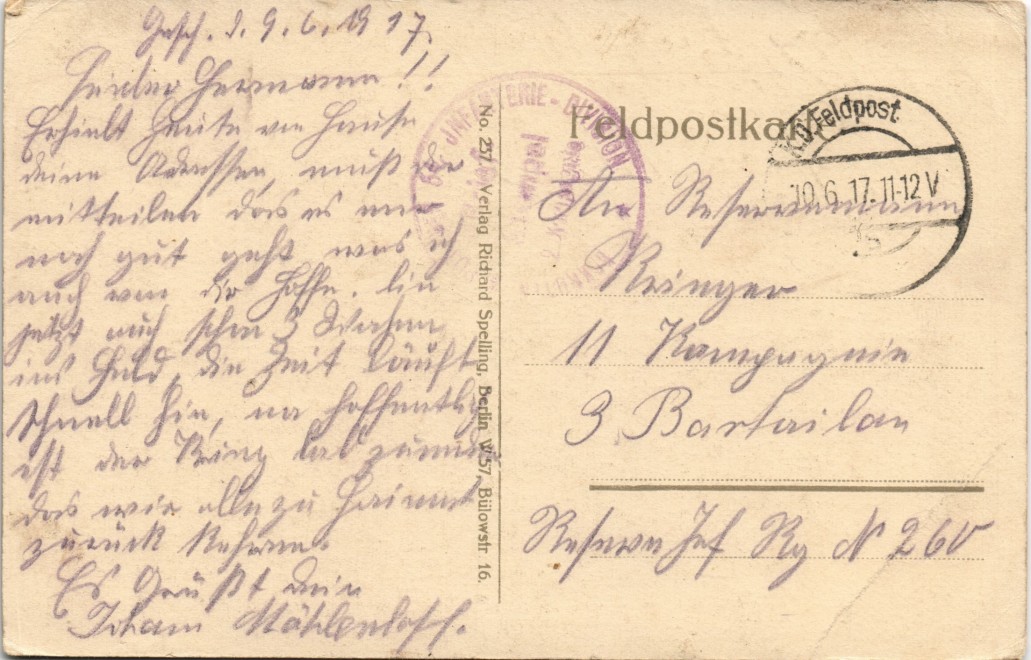 Gesch. d. 9.6.1917.
Lieber Hermann!!
Erhielt heute von Hause
deine Adresse, muß dir
mitteilen das es mir
noch gut geht was ich
auch von dir hoffe. bin
jetzt auch schon 3 Wochen
ins Feld, die Zeit läuft
schnell hin, na hoffentlig
ist der Krieg bal zuende
das wir alle zu Haimat
zurück Kehren.
Es Grüßt dein
Johann
No. 257 Verlag Richard Spelling, Berlin W.57, Bülowstr 16.
INFANTERIE-DIVISION
Feldpostkarte
Feldpost
10.6.17.11-12V
An Reservemann
Kringer
11 Kompagnie
3 Bartailon
Reserve Inf Rg N 260